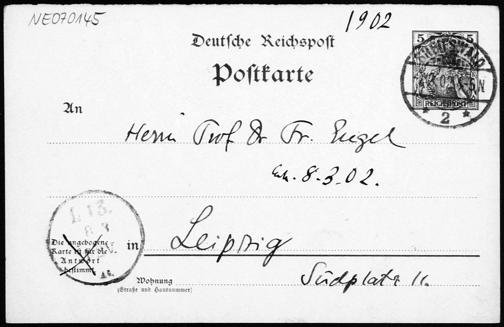 NE070145
1902
5 5
Deutsche Reichspost
Postkarte
GREIFSWALD
REICHSPOST
* 2 *
An
Herrn Prof Dr Fr. Engel
8.3.02.
L 13.
8 3
Die angebogene
Karte ist für die
Antwort
bestimmt
in Leipzig
Wohnung
(Straße und Hausnummer)
Südplatz 11.